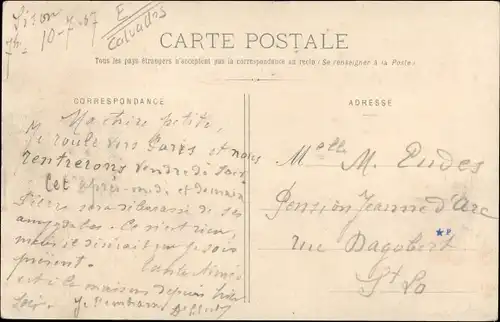 10-7-07
E
Calvados
CARTE POSTALE
Tous les pays étrangers n'acceptent pas la correspondance au recto (Se renseigner à la Poste)
CORRESPONDANCE
Ma chère petite,
Je roule vers Paris et nous
rentrerons vendredi soir
Cet après-midi et demain
Pierre sera débarassé de ses
amygdales. Ce n'est rien,
mais et désirait que je sois
présent. Tante Aimée
est à la maison depuis hier
soir. Je t'embrasse
ADRESSE
Melle M. Eudes
Pension Jeanne d'Arc
rue Dagobert
St Lo